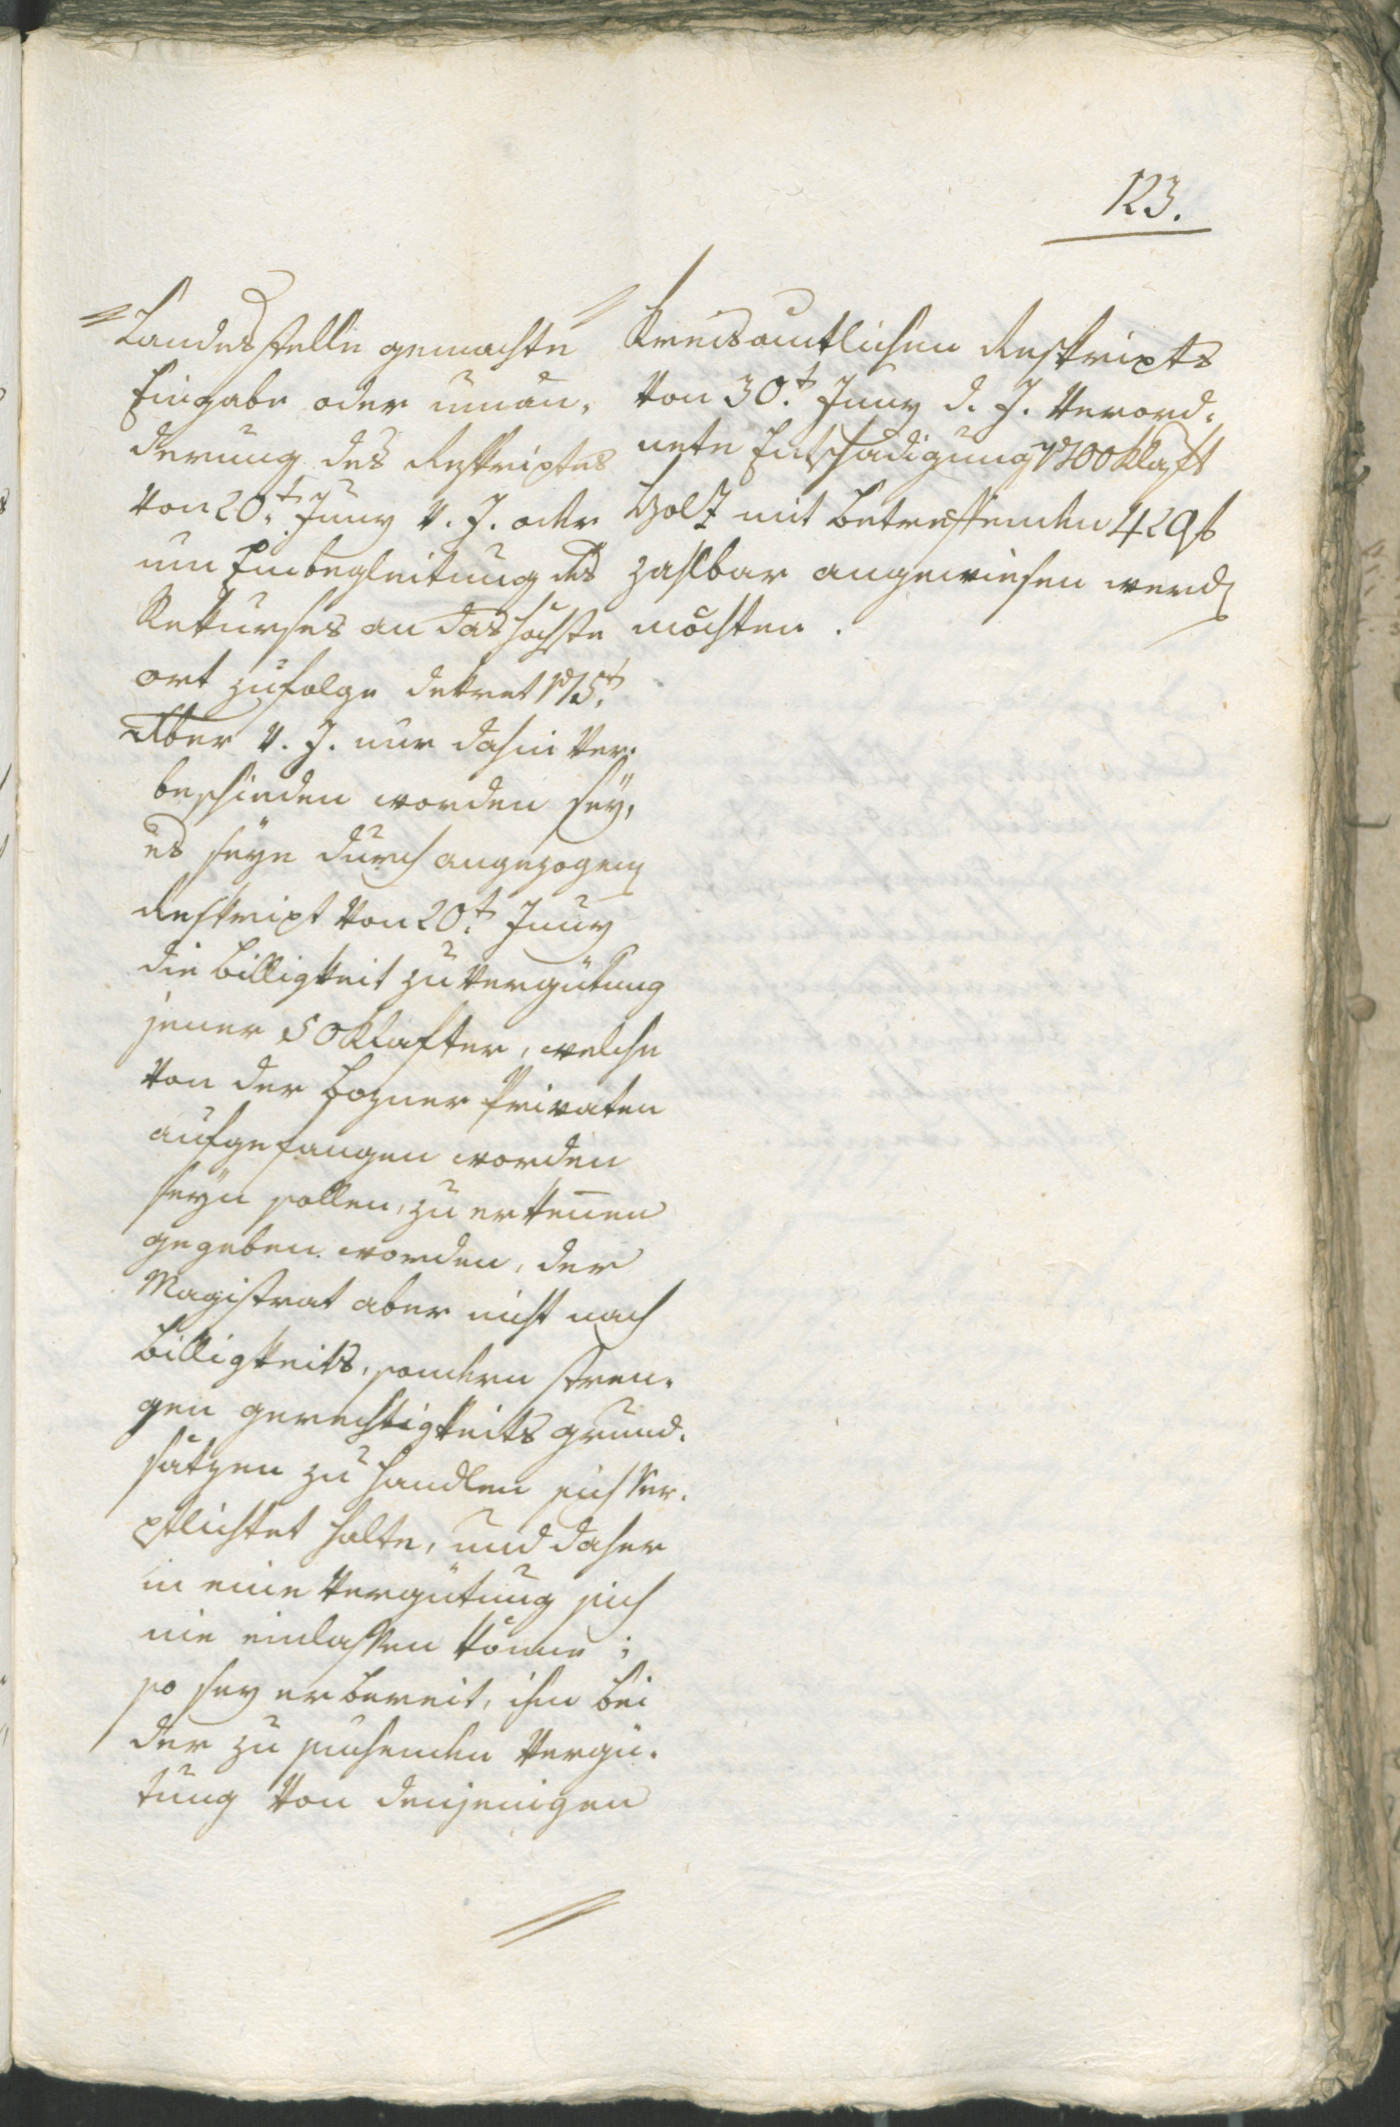 123.
Landesstelle gemachte
Eingabe oder umän¬
derung des Reskriptes
von 20.t Juny v. J. oder
um Einbegleitung des
Rekurses an das höchste
ort zufolge dekret 15.t
8ber v. J. nur dahin ver¬
beschieden worden seÿ,
es seÿe durch angezogenes
Reskript von 20.t Juny
die billigkeit zu vergütung
jener 50 Klafter, welche
von der Bozner Privaten
aufgefangen worden
seÿn sollen, zu erkennen
gegeben worden, der
Magistrat aber nicht nach
billigkeits, sondern stren¬
gen gerechtigkeits grund¬
sätzen zu handlen sich ver¬
pflichtet halte, und daher
in eine vergütung sich
nie einlassen könne;
so sey er bereit, ihn bei
der zu suchenden vergü¬
tung von denjenigen
Kreisamtlichen Reskripts
von 30.t Juny d. J. verord¬
nete Entschädigung pr 100 Klaft
Holz mit betreffenden 429 f
zahlbar angewiesen werden
möchten.